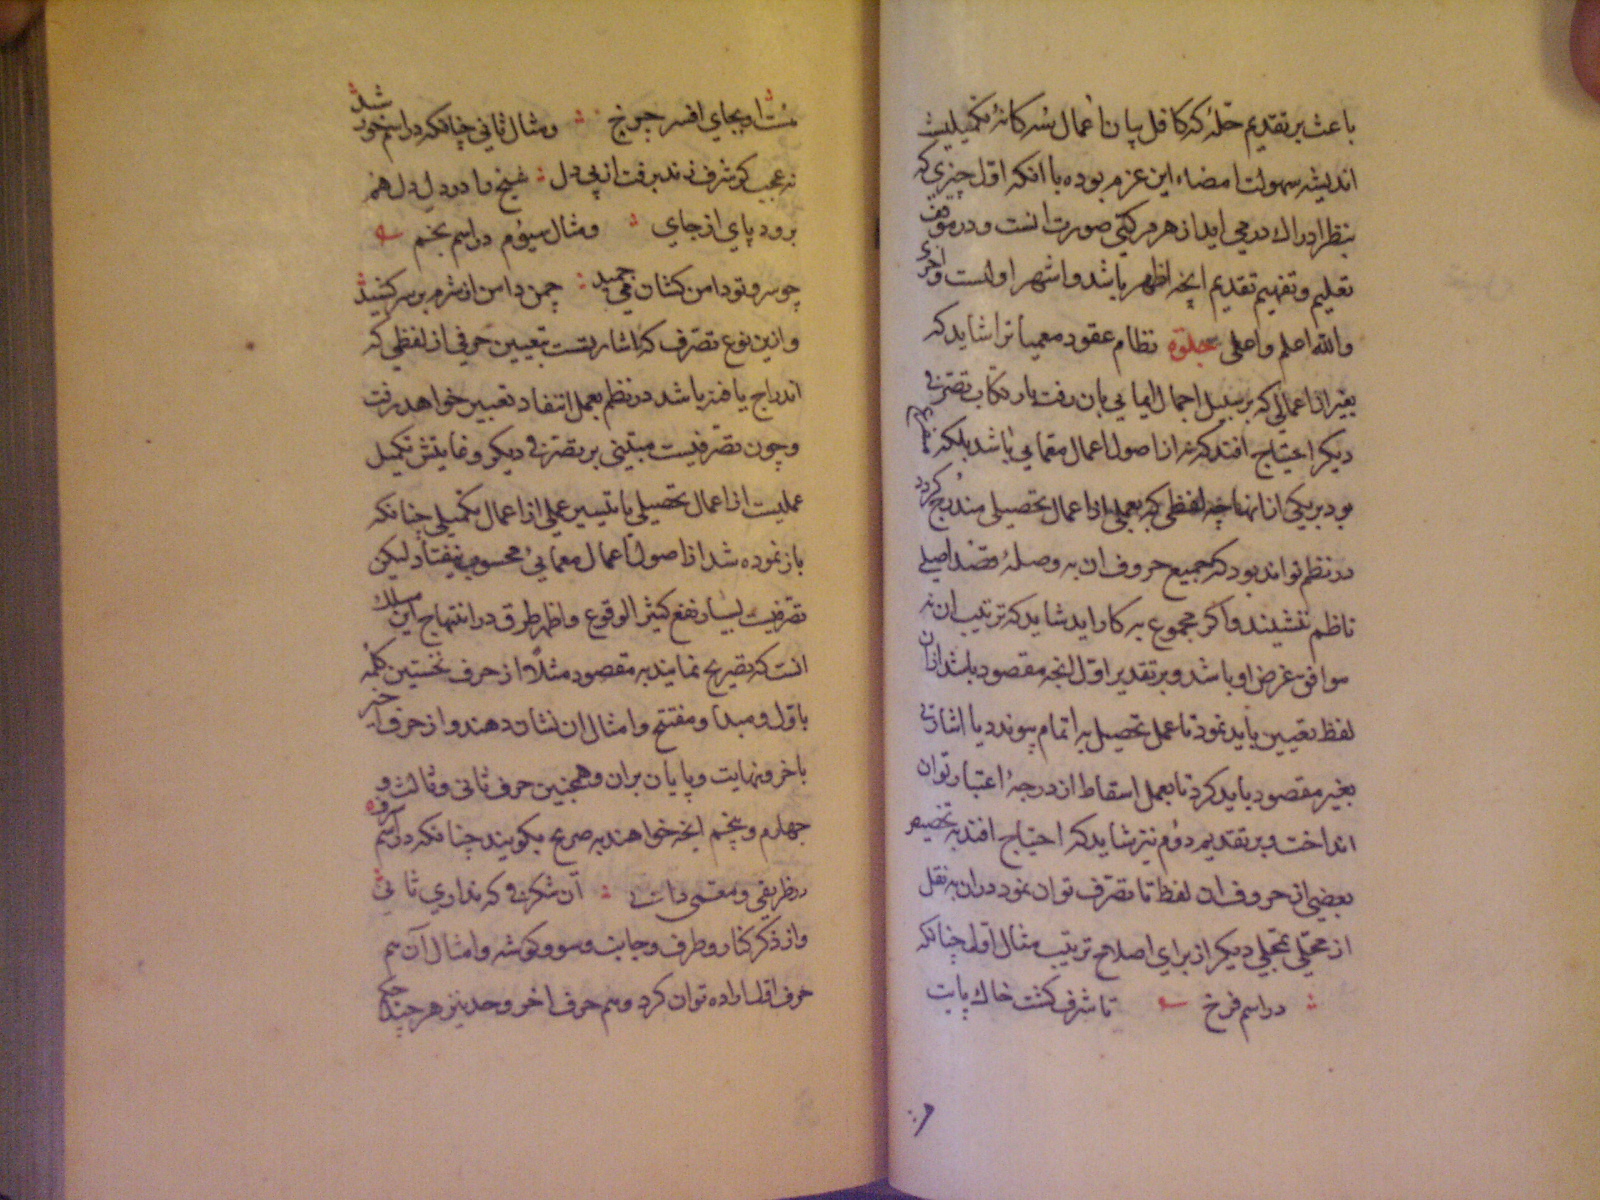 باعث بر تقدیم حله که کافل بیان اعمال سه کانهٔ تکمیلیست
اندیشه سهولت امضاء این عزم بوده با انکه اول چیزی که
بنظر ادراک درمی اید از هر مرکبی صورت انست و در موقف
تعلیم و تفهیم تقدیم انچه اظهر باشد و اشهر اولست و احری
والله اعلم واعلی جلوة نظام عقود معمیاترا شاید که
بغیر از اعمالی که بر سبیل اجمال ایمایی بان رفت بارتکاب تصرفی
دیکر احتیاج افتد که نه از اصول اعمال معمایی باشد بلکه
بود بر یکی از انها چه لفظی که بعملی از اعمال تحصیلی مندرج کردد
در نظم تواند بود که جمیع حروف ان به وصلهٔ قصد اصلی
ناظم ننشیند و اکر مجموع به کار اید شاید که ترتیب ان نه
موافق غرض او باشد و بر تقدیر اول انچه مقصود باشد ازان
لفظ تعیین باید نمود تا عمل تحصیل به اتمام پیوندد یا اشارتی
بغیر مقصود باید کرد تا بعمل اسقاط از درجهٔ اعتبار توان
انداخت و بر تقدیم دوم نیز شاید که احتیاج افتد به تخصیص
بعضی از حروف ان لفظ تا تصرف توان نمود دران به نقل
از محلی بمحلی دیکر از برای اصلاح ترتیب مثال اول چنانکه
در اسم فرخ تا شرف کشت خاک پایت
شد او بجای افسر چرخ و مثال ثانی چنانکه در اسم خود
نه عجب کر شرف ز تدبرفت از پی دل شیخ را در ره دل دل هم
برود پای از جای و مثال سیوم در اسم نجم
چو سرو تو دامن کشان می چمید چمن دامن از شرم بر سر کشید
و ازین نوع تصرف که اشارتست بتعیین حرفی از لفظی که
اندراج یافته باشد در نظم بعمل انتقاد تعبیر خواهد رفت
و چون تصرفیست مبتنی بر تصرفی دیکر و غایتش تکمیل
عملیست از اعمال تحصیلی یا تیسیر عملی از اعمال تکمیلی چنانکه
باز نموده شد از اصول اعمال معمایی محسوب نیفتاد لیکن
تصرفیست بسیار نفع کثیر الوقوع و اظهر طرق در انتهاج این مسلک
انست که تصریح نمایند به مقصود مثلاً از حرف نخستین کلمه
باول و مبدا و مفتتح و امثال ان نشان دهند و از حرف اخیر
باخر و نهایت و پایان بران و همچنین حرف ثانی و ثالث و
چهارم و پنجم انچه خواهند به صریح بکویند چنانکه در اسم
در ظریفی و مقسی ذات آن شکرفی که نداری ثانی
و از ذکر کنار و طرف و جانب و سو و کوشه و امثال آن هم
حرف اول اراده توان کرد و هم حرف اخر و حد نیز هر چند